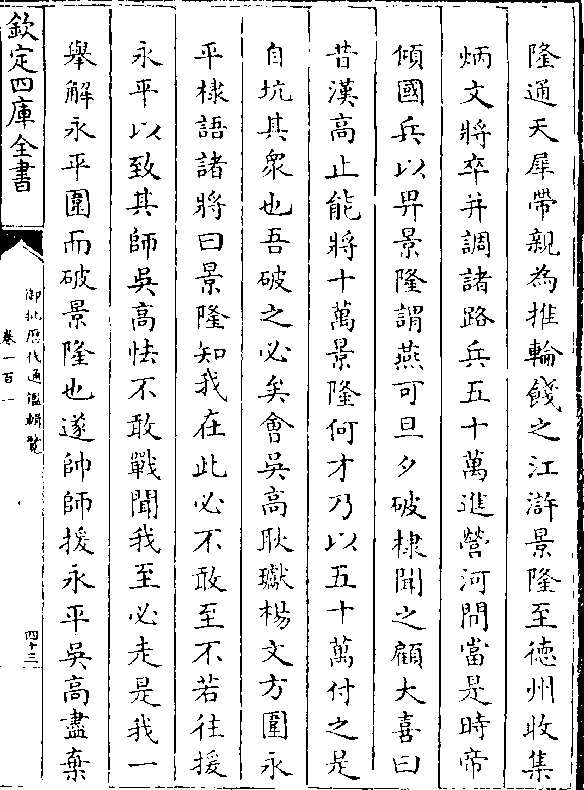 隆通天犀帶親為推輪餞之江滸景隆至德州收集
炳文將卒并調諸路兵五十萬進營河間當是時帝
傾國兵以畀景隆謂燕可旦夕破棣聞之顧大喜曰
昔漢高止能將十萬景隆何才乃以五十萬付之是
自坑其衆也吾破之必矣會吳高耿瓛楊文方圍永
平棣語諸將曰景隆知我在此必不敢至不若往援
永平以致其師吳高怯不敢戰聞我至必走是我一
舉解永平圍而破景隆也遂帥師援永平吳高盡棄
欽定四庫全書
御批歷代通鑑輯覽
卷一百一
四十三